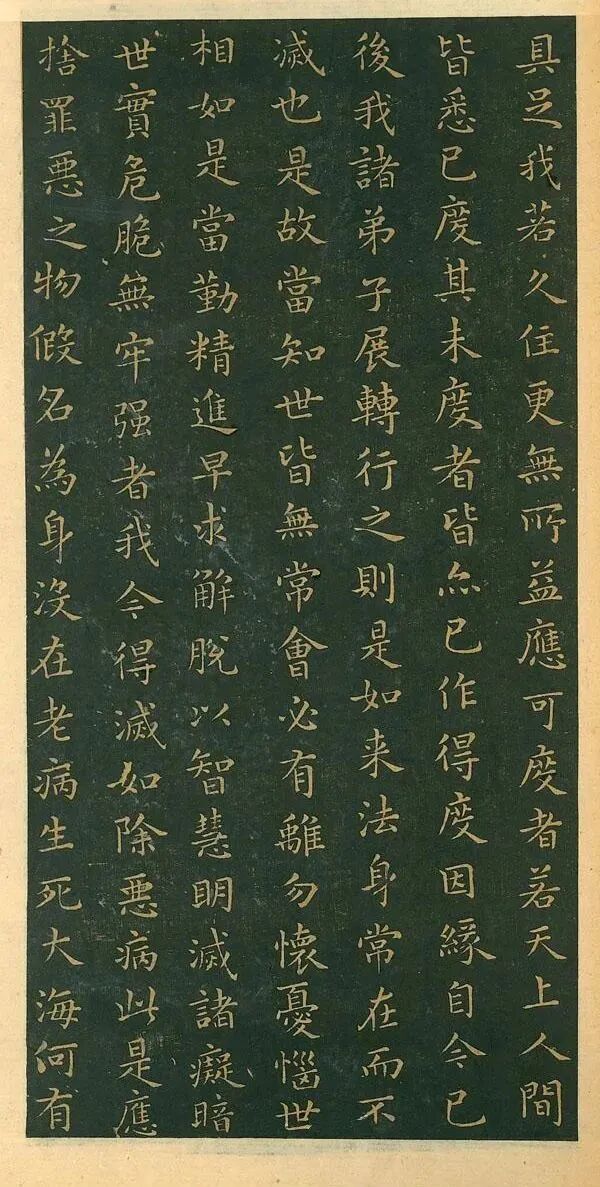 具足我若久住更無所益應可度者若天上人間
皆悉已度其未度者皆亦已作得度因緣自今已
後我諸弟子展轉行之則是如来法身常在而不
滅也是故當知世皆無常會必有離勿懷憂惱世
相如是當勤精進早求解脫以智慧明滅諸癡暗
世實危脆無牢强者我今得滅如除惡病此是應
捨罪惡之物假名為身沒在老病生死大海何有